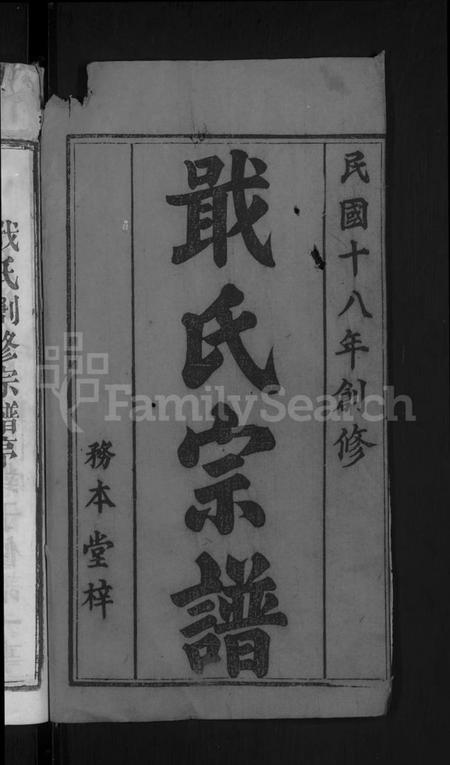 民國十八年創修
戢氏宗譜
務本堂梓
戢氏創修宗譜序
FamilySearch